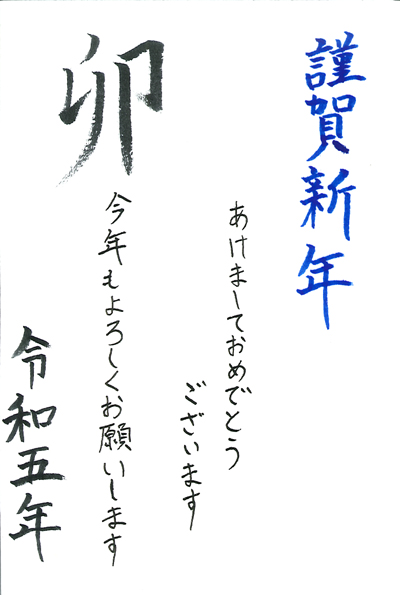 謹賀新年
あけましておめでとう
ございます
卯
今年もよろしくお願いします
令和五年